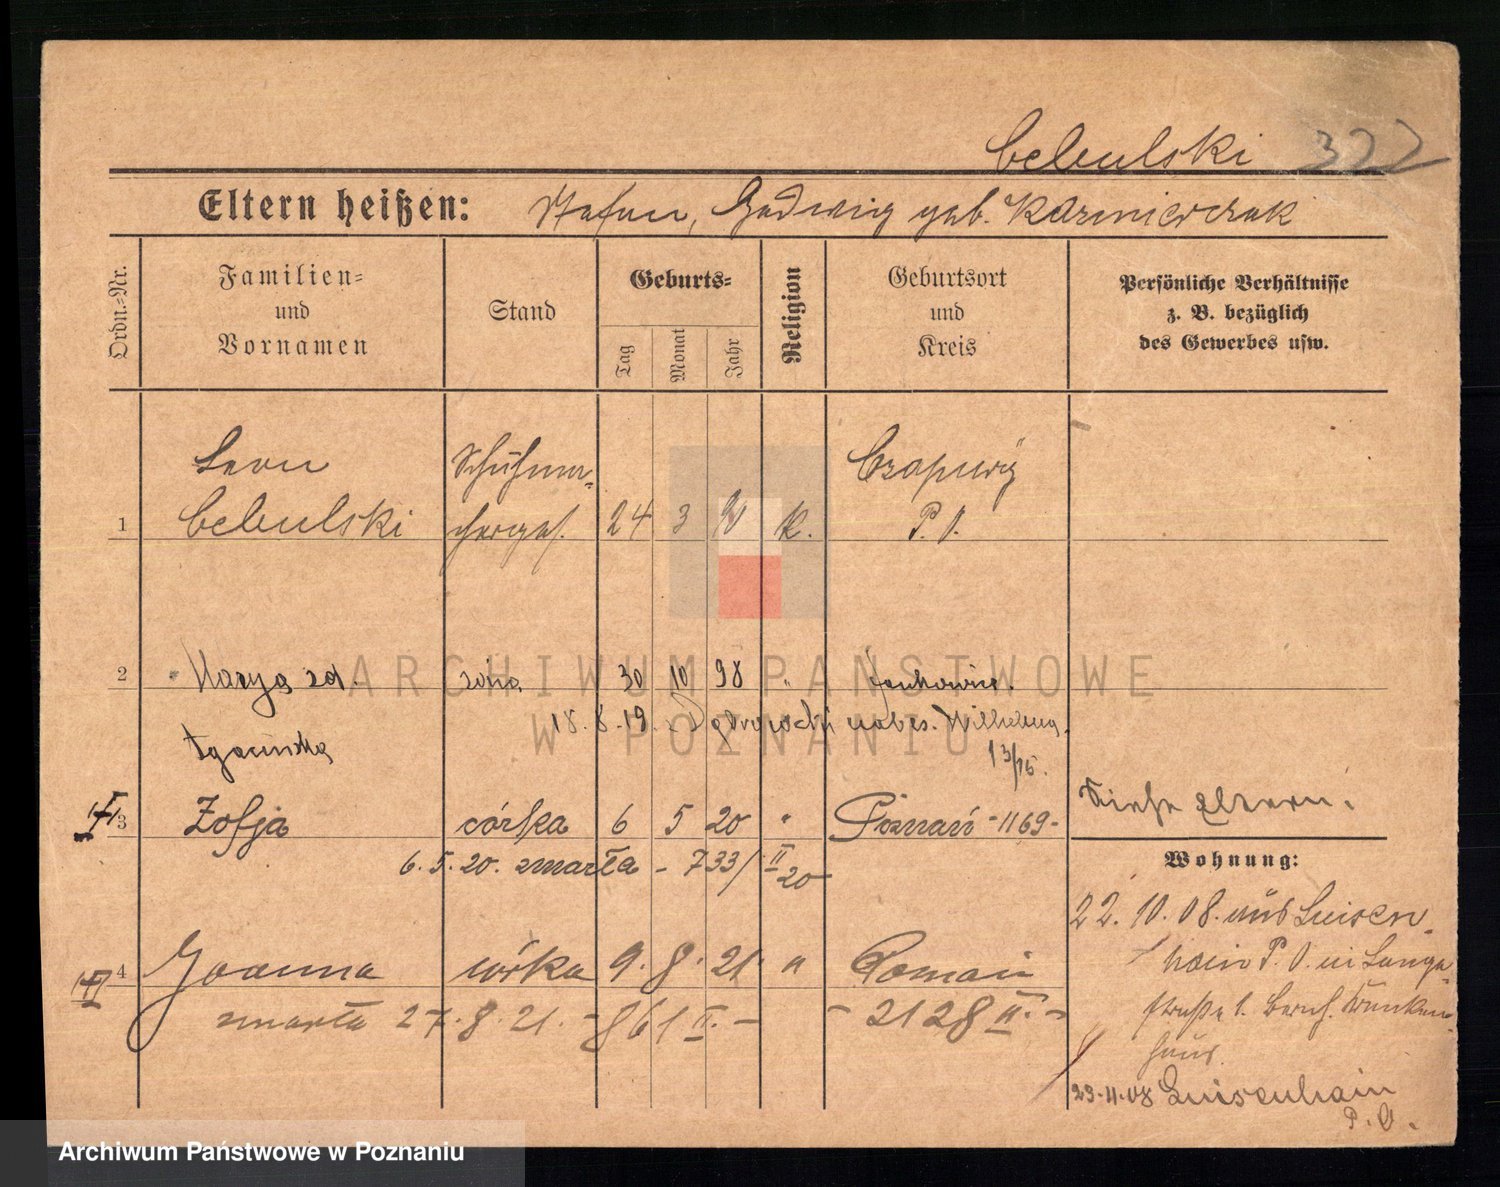 Cebulski 322
Eltern heißen: Stefan, Hedwig geb. Kazmierczak
Ordn.=Nr.
Familien=
und
Vornamen
Stand
Geburts=
Tag
Monat
Jahr
Religion
Geburtsort
und
Kreis
Persönliche Verhältnisse
z. B. bezüglich
des Gewerbes usw.
Leon Schuhma=
1 Cebulski 24 3 K.
Czapury
P. O.
2 Marya żona 30 10 98 "
18. 8. 19.
Wilhelma
13/15.
3 Zofja córka 6 5 20 " Poznań - 1169 -
6. 5. 20. zmarła - 733/II 20
Siehe Eltern.
Wohnung:
22. 10. 08. aus Luisen
hain P. O. in Lange
straße 1. Kranken
haus.
23. 11. 08 Luisenhain
P. O.
4 Joanna córka 9. 8. 21. "
zmarła 27. 8. 21. - 861 II. -
- 2128 II. -
ARCHIWUM PAŃSTWOWE
W POZNANIU
Archiwum Państwowe w Poznaniu